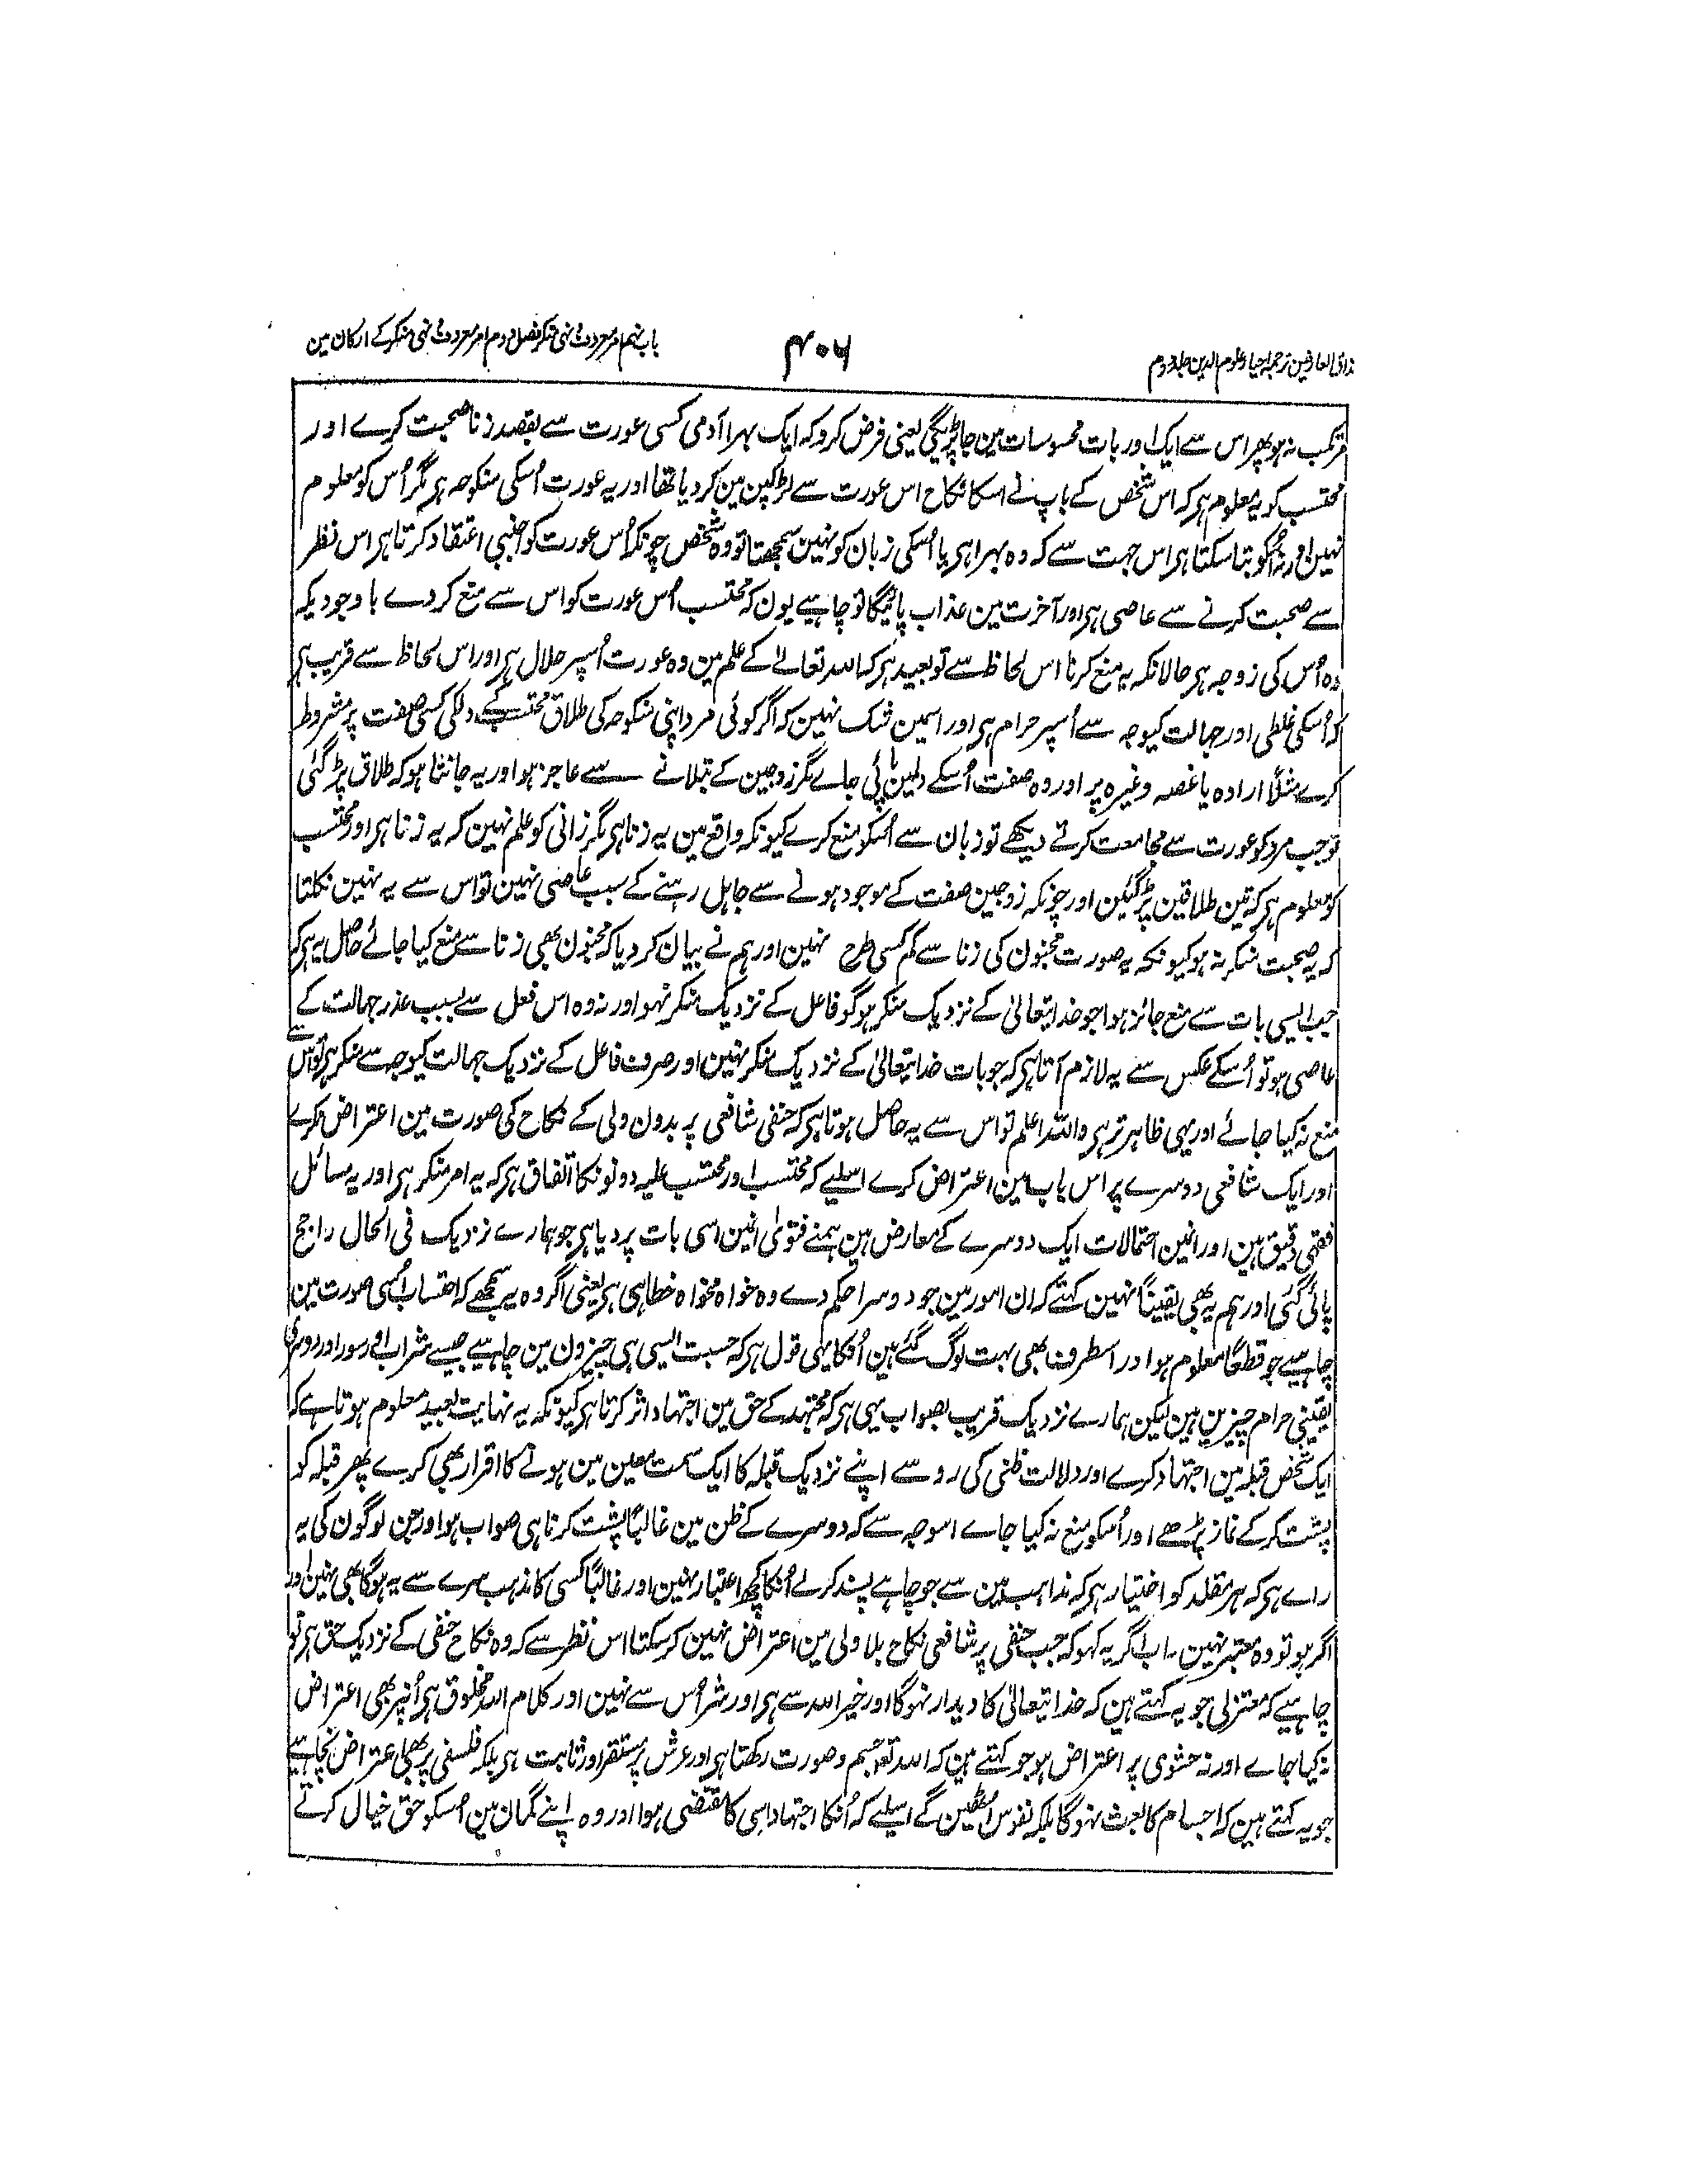 مذاق العارفین ترجمہ احیاء علوم الدین جلد دوم
۴۰۶
باب نہم امر معروف و نہی منکر فصل دوم امر معروف و نہی منکر کے ارکان مین
مرتکب نہ ہو پھر اس سے ایک اور بات محسوسات مین جا پڑیگی یعنی فرض کرو کہ ایک بہرا آدمی کسی عورت سے بقصد زنا صحبت کرے اور
محتسب کو یہ معلوم ہر کہ اس شخص کے باپ نے اسکا نکاح اس عورت سے لڑکپن مین کر دیا تھا اور یہ عورت اُسکی منکوحہ ہر مگر اُس کو معلوم
نہین اور نہ اُسکو بتا سکتا ہر اس جہت سے کہ وہ بہرا ہر یا اُسکی زبان کو نہین سمجھتا تو وہ شخص چونکہ اُس عورت کو اجنبی اعتقاد کرتا ہر اس نظر
سے صحبت کرنے سے عاصی ہر اور آخرت مین عذاب پائیگا تو چاہیے یون کہ محتسب اُس عورت کو اس سے منع کر دے باوجودیکہ
وہ اُس کی زوجہ ہر حالانکہ یہ منع کرنا اس لحاظ سے تو بعید ہر کہ اللہ تعالےٰ کے علم مین وہ عورت اُسپر حلال ہر اور اس لحاظ سے قریب ہر
کہ اُسکی غلطی اور جہالت کیوجہ سے اُسپر حرام ہر اور اسمین شک نہین کہ اگر کوئی مرد اپنی منکوحہ کی طلاق محتسب کے دلکی کسی صفت پر مشروط
کرے مثلًا ارادہ یا غصہ وغیرہ پر اور وہ صفت اُسکے دلمین پائی جاے مگر زوجین کے بتلانے سے عاجز ہو اور یہ جانتا ہو کہ طلاق پڑ گئی
تو جب مرد کو عورت سے مجامعت کرتے دیکھے تو زبان سے اُسکو منع کرے کیونکہ واقع مین یہ زنا ہر مگر زانی کو علم نہین کہ یہ زنا ہر اور محتسب
کو معلوم ہر کہ تین طلاقین پڑ گئین اور چونکہ زوجین صفت کے موجود ہونے سے جاہل رہنے کے سبب عاصی نہین تو اس سے یہ نہین نکلتا
کہ یہ صحبت منکر نہ ہو کیونکہ یہ صورت مجنون کی زنا سے کم کسی طرح نہین اور ہم نے بیان کر دیا کہ مجنون بھی زنا سے منع کیا جائے حاصل یہ ہر کہ
جب ایسی بات سے منع جائز ہوا جو خدا یتعالیٰ کے نزدیک منکر ہو گو فاعل کے نزدیک منکر نہو اور نہ وہ اس فعل سے بسبب عذر جہالت کے
عاصی ہو تو اُسکے عکس سے یہ لازم آتا ہر کہ جو بات خدا یتعالیٰ کے نزدیک منکر نہین اور صرف فاعل کے نزدیک جہالت کیوجہ سے منکر ہر تو اس سے
منع نہ کیا جائے اور یہی ظاہر تر ہر واللہ اعلم تو اس سے یہ حاصل ہوتا ہر کہ حنفی شافعی پر بدون ولی کے نکاح کی صورت مین اعتراض نکرے
اور ایک شافعی دوسرے پر اس باب مین اعتراض کرے اسلیے کہ محتسب اور محتسب علیہ دونو نکا اتفاق ہر کہ یہ امر منکر ہر اور یہ مسائل
فقہی دقیق ہین اور انمین احتمالات ایک دوسرے کے معارض ہین ہمنے فتویٰ انمین اسی بات پر دیا ہر جو ہمارے نزدیک فی الحال راجح
پائی گئی اور ہم یہ بھی یقیناً نہین کہتے کہ ان امور مین جو دوسرا حکم دے وہ خواہ مخواہ خطا ہی ہر یعنی اگر وہ یہ سمجھے کہ احتساب اُسی صورت مین
چاہیے جو قطعًا معلوم ہو اور اسطرف بھی بہت لوگ گئے ہین اُنکا یہی قول ہر کہ حسبت ایسی ہی چیزون مین چاہیے جیسے شراب اور سور اور دوسری
یقینی حرام چیزین ہین لیکن ہمارے نزدیک قریب بصواب یہی ہر کہ مجتہد کے حق مین اجتہاد اثر کرتا ہر کیونکہ یہ نہایت بعید معلوم ہوتا ہے کہ
ایک شخص قبلہ مین اجتہاد کرے اور دلالت ظنی کی رو سے اپنے نزدیک قبلہ کا ایک سمت معین مین ہونے کا اقرار بھی کرے پھر قبلہ کو
پشت کر کے نماز پڑھے اور اُسکو منع نہ کیا جاے اسوجہ سے کہ دوسرے کے ظن مین غالبًا پشت کرنا ہی صواب ہو اور جن لوگون کی یہ
راے ہر کہ ہر مقلد کو اختیار ہر کہ مذاہب مین سے جو چاہے پسند کر لے اُنکا کچھ اعتبار نہین اور غالبًا کسی کا مذہب سرے سے یہ ہو گا بھی نہین اور
اگر ہو تو وہ معتبر نہین ۔ اب اگر یہ کہو کہ جب حنفی پر شافعی نکاح بلا ولی مین اعتراض نہین کر سکتا اس نظر سے کہ وہ نکاح حنفی کے نزدیک حق ہر تو
چاہیے کہ معتزلی جو یہ کہتے ہین کہ خدا یتعالیٰ کا دیدار نہو گا اور خیر اللہ سے ہر اور شر اُس سے نہین اور کلام اللہ مخلوق ہر اُنپر بھی اعتراض
نہ کیا جاے اور نہ حشوی پر اعتراض ہو جو کہتے ہین کہ اللہ تعہ جسم و صورت رکھتا ہر اور عرش پر مستقر اور ثابت ہر بلکہ فلسفی پر بھی اعتراض نچاہیے
جو یہ کہتے ہین کہ اجسام کا بعث نہو گا بلکہ نفوس اُٹھین گے اسلیے کہ اُنکا اجتہاد اسی کا مقتضی ہوا اور وہ اپنے گمان مین اُسکو حق خیال کرتے